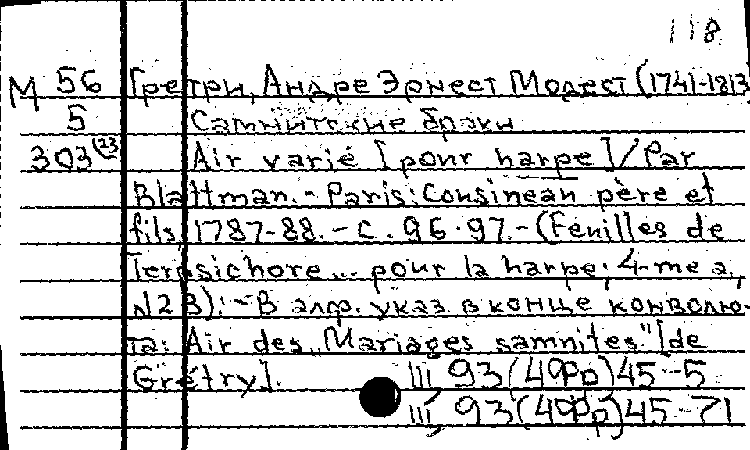 118
М 56 Гретри, Андре Эрнест Модест (1741-1813
5 Самнитские браки
303(23 Air varié [pour harpe]/Par
Blattman.- Paris: Cousineau père et
fils, 1787-88.- С. 96-97.- (Feuilles de
Terpsichore... pour la harpe; 4-me a,
N2 B).- В алф. указ. в конце конволю-
та: Air des „Mariages samnites" [de
Grétry].
III, 93(4Фр)45-5
III, 93(4Фр)45-71